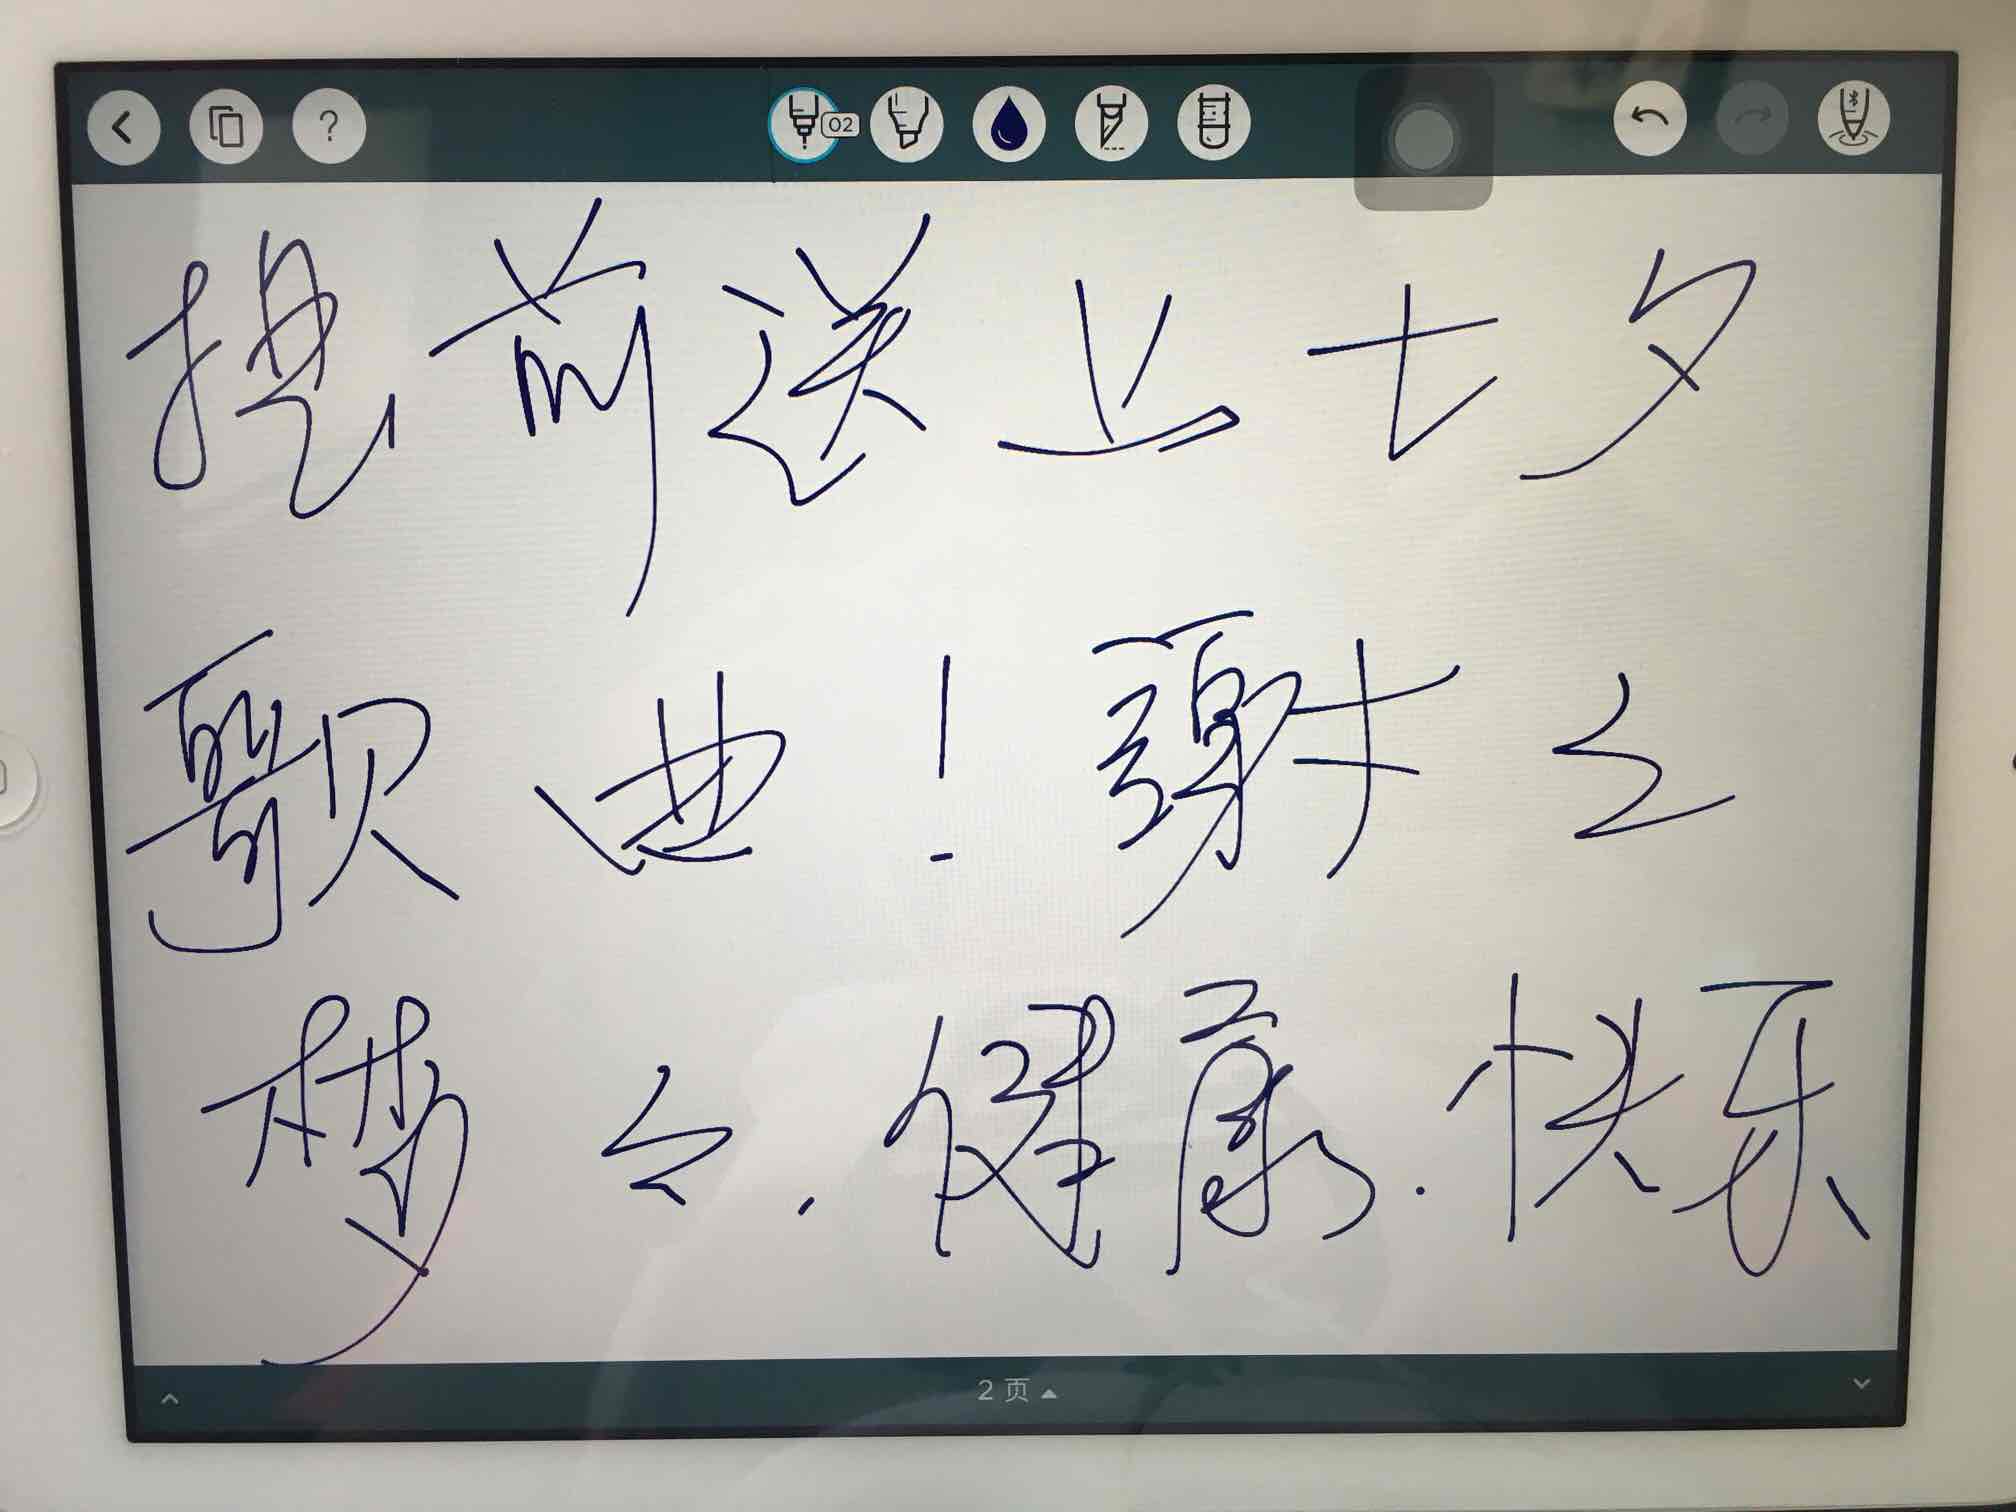 ?
02
提前送上七夕
歌曲！謝々
梦々.健康.快乐
2 页